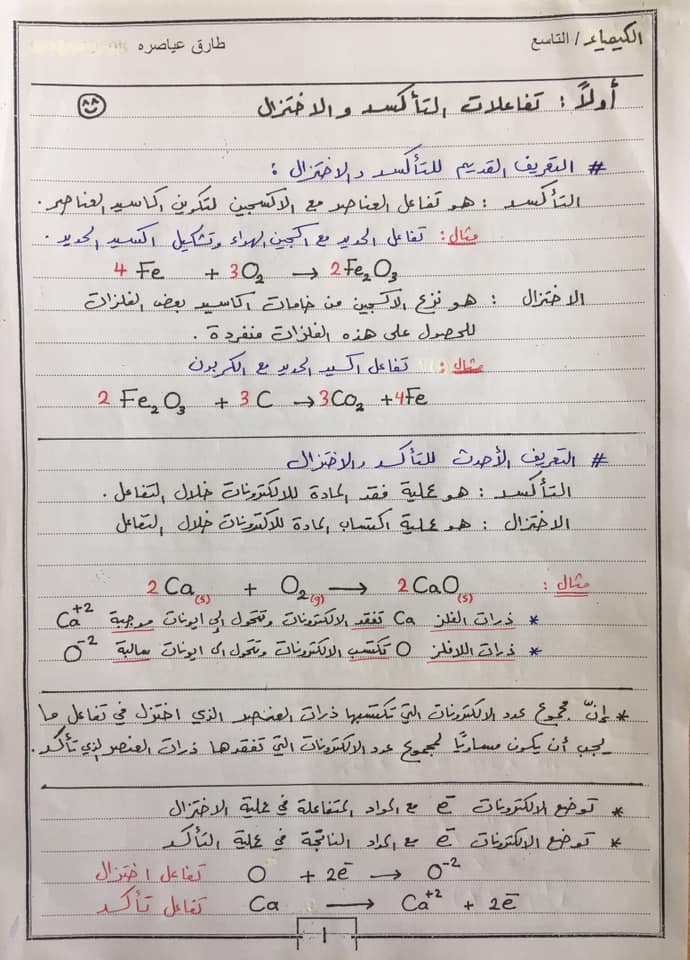 الكيمياء / التاسع
طارق عياصره
أولاً : تفاعلات التأكسد والاختزال
# التعريف القديم للتأكسد والاختزال :
التأكسد : هو تفاعل العناصر مع الاكسجين لتكوين اكاسيد العناصر .
مثال : تفاعل الحديد مع اكجين الهواء وتشكيل اكسيد الحديد .
4 Fe + 3O₂ → 2Fe₂O₃
الاختزال : هو نزع الاكجين من خامات اكاسيد بعض الفلزات
للحصول على هذه الفلزات منفردة .
مثال : تفاعل اكسيد الحديد مع الكربون
2 Fe₂O₃ + 3 C → 3Co₂ + 4Fe
# التعريف الأحدث للتأكسد والاختزال
التأكسد : هو عملية فقد المادة للالكترونات خلال التفاعل .
الاختزال : هو عملية اكتساب المادة للالكترونات خلال التفاعل
مثال : 2 Ca(s) + O₂(g) → 2 CaO(s)
* ذرات الفلز Ca تفقد الالكترونات وتتحول إلى ايونات موجبة Ca⁺²
* ذرات اللافلز O تكتسب الالكترونات وتتحول الى ايونات سالبة O⁻²
* إنّ مجموع عدد الالكترونات التي تكتسبها ذرات العنصر الذي اختزل في تفاعل ما
يجب أن يكون مساويًا لمجموع عدد الالكترونات التي تفقدها ذرات العنصر الذي تأكسد .
* توضع الالكترونات e⁻ مع المواد المتفاعلة في عملية الاختزال
* توضع الالكترونات e⁻ مع المواد الناتجة في عملية التأكسد
تفاعل اختزال O + 2e⁻ → O⁻²
تفاعل تأكسد Ca → Ca⁺² + 2e⁻
1